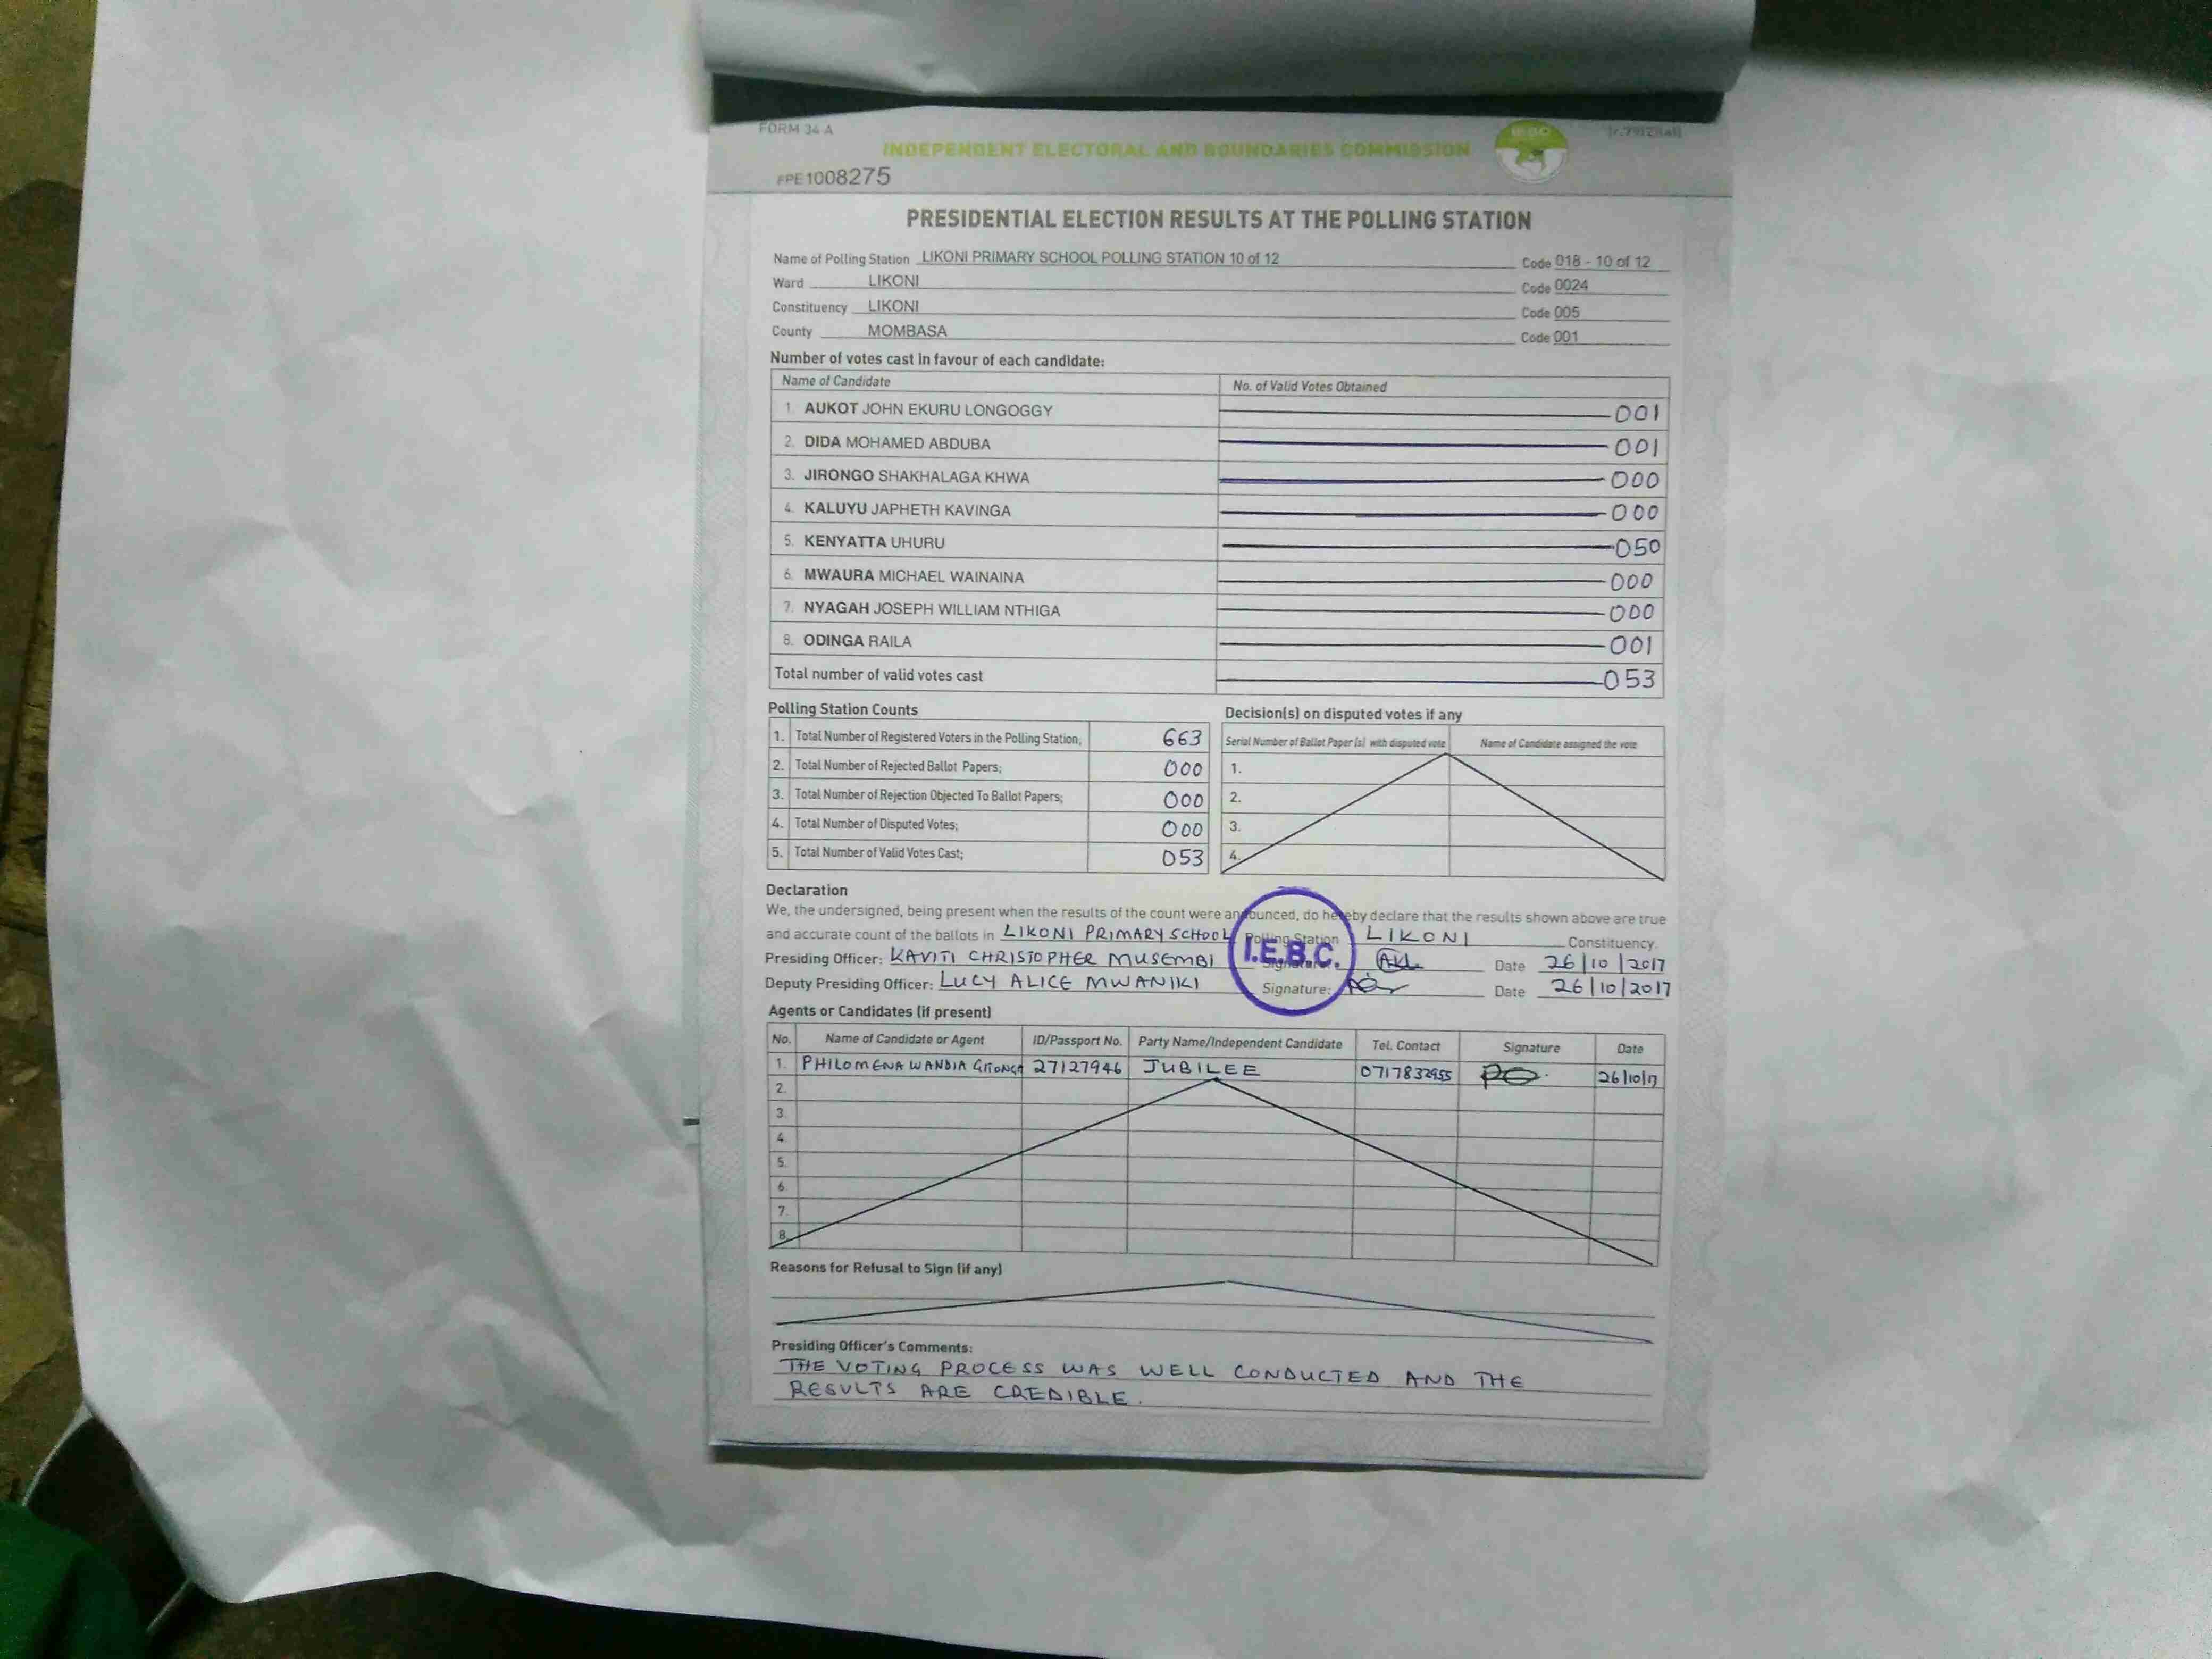 FORM 34 A
INDEPENDENT ELECTORAL AND BOUNDARIES COMMISSION
IEBC
PPE1008275
PRESIDENTIAL ELECTION RESULTS AT THE POLLING STATION
Name of Polling Station LIKONI PRIMARY SCHOOL POLLING STATION 10 of 12 Code 018 - 10 of 12
Ward LIKONI Code 0024
Constituency LIKONI Code 005
County MOMBASA Code 001
Number of votes cast in favour of each candidate:
Name of Candidate No. of Valid Votes Obtained
1. AUKOT JOHN EKURU LONGOGGY 001
2. DIDA MOHAMED ABDUBA 001
3. JIRONGO SHAKHALAGA KHWA 000
4. KALUYU JAPHETH KAVINGA 000
5. KENYATTA UHURU 050
6. MWAURA MICHAEL WAINAINA 000
7. NYAGAH JOSEPH WILLIAM NTHIGA 000
8. ODINGA RAILA 001
Total number of valid votes cast 053
Polling Station Counts
1. Total Number of Registered Voters in the Polling Station; 663
2. Total Number of Rejected Ballot Papers; 000
3. Total Number of Rejection Objected To Ballot Papers; 000
4. Total Number of Disputed Votes; 000
5. Total Number of Valid Votes Cast; 053
Decision(s) on disputed votes if any
Serial Number of Ballot Paper (s) with disputed vote Name of Candidate assigned the vote
1.
2.
3.
4.
Declaration
We, the undersigned, being present when the results of the count were announced, do hereby declare that the results shown above are true
and accurate count of the ballots in LIKONI PRIMARY SCHOOL Polling Station LIKONI Constituency.
Presiding Officer: KAVITI CHRISTOPHER MUSEMBI Signature: Date 26/10/2017
Deputy Presiding Officer: LUCY ALICE MWANIKI Signature: Date 26/10/2017
I.E.B.C.
Agents or Candidates (if present)
No. Name of Candidate or Agent ID/Passport No. Party Name/Independent Candidate Tel. Contact Signature Date
1. PHILOMENA WANDIA GITONGA 27127946 JUBILEE 0717832955 26/10/17
2.
3.
4.
5.
6.
7.
8.
Reasons for Refusal to Sign (if any)
Presiding Officer's Comments:
THE VOTING PROCESS WAS WELL CONDUCTED AND THE
RESULTS ARE CREDIBLE.